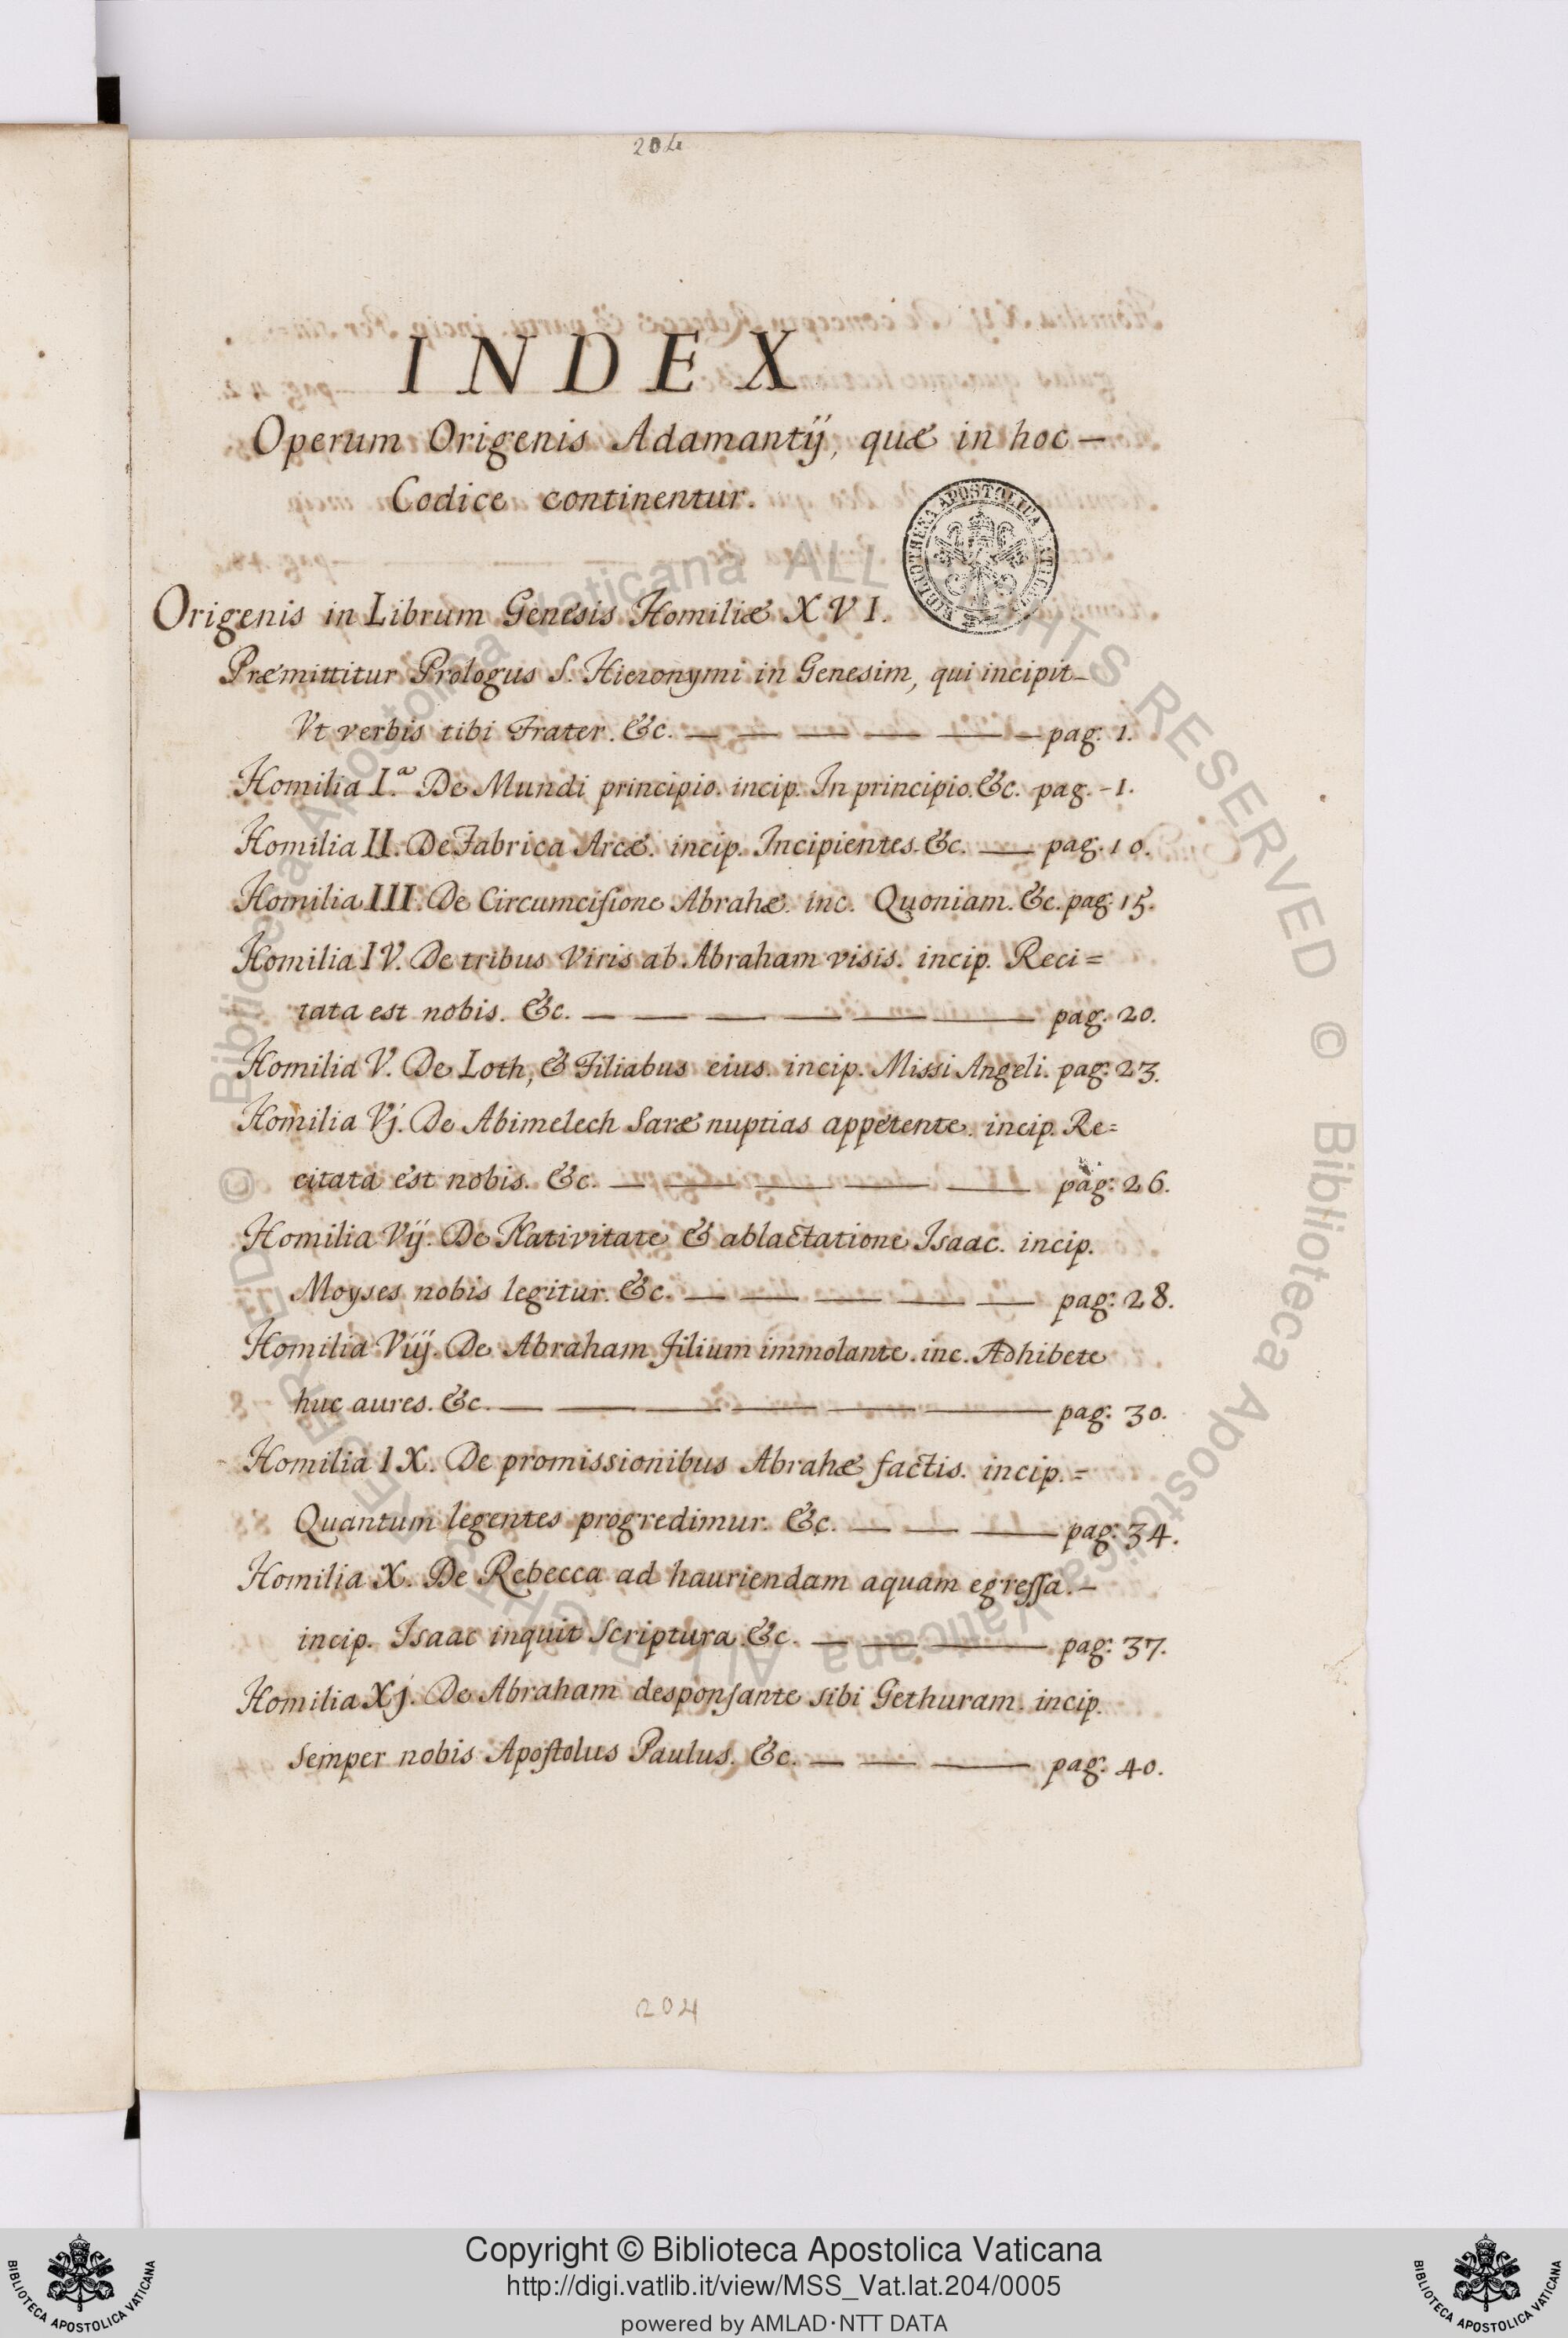 204
INDEX
Operum Origenis Adamantij, quæ in hoc —
Codice continentur.
BIBLIOTHECA APOSTOLICA VATICANA
Origenis in Librum Genesis Homiliæ XVI.
Præmittitur Prologus S. Hieronymi in Genesim, qui incipit —
Vt verbis tibi Frater. &c. — — — — — — pag: 1.
Homilia I.ª De Mundi principio. incip. In principio. &c. pag. - 1.
Homilia II. De Fabrica Arcæ. incip. Incipientes. &c. — pag. 10.
Homilia III. De Circumcisione Abrahæ. inc. Quoniam. &c. pag: 15.
Homilia IV. De tribus Viris ab Abraham visis. incip. Reci=
tata est nobis. &c. — — — — — — pag: 20.
Homilia V. De Loth, & Filiabus eius. incip. Missi Angeli. pag: 23.
Homilia Vj. De Abimelech Saræ nuptias appetente. incip. Re=
citata est nobis. &c. — — — — — pag: 26.
Homilia Vij. De Nativitate & ablactatione Isaac. incip.
Moyses nobis legitur. &c. — — — — — pag: 28.
Homilia Viij. De Abraham Filium immolante. inc. Adhibete
huc aures. &c. — — — — — — pag: 30.
Homilia IX. De promissionibus Abrahæ factis. incip. =
Quantum legentes progredimur. &c. — — — pag: 34.
Homilia X. De Rebecca ad hauriendam aquam egressa. —
incip. Isaac inquit Scriptura. &c. — — — pag: 37.
Homilia Xj. De Abraham desponsante sibi Gethuram. incip.
Semper nobis Apostolus Paulus. &c. — — — pag: 40.
204
© Biblioteca Apostolica Vaticana ALL RIGHTS RESERVED
© Biblioteca Apostolica Vaticana ALL RIGHTS RESERVED
Copyright © Biblioteca Apostolica Vaticana
http://digi.vatlib.it/view/MSS_Vat.lat.204/0005
powered by AMLAD·NTT DATA
BIBLIOTECA APOSTOLICA VATICANA
BIBLIOTECA APOSTOLICA VATICANA